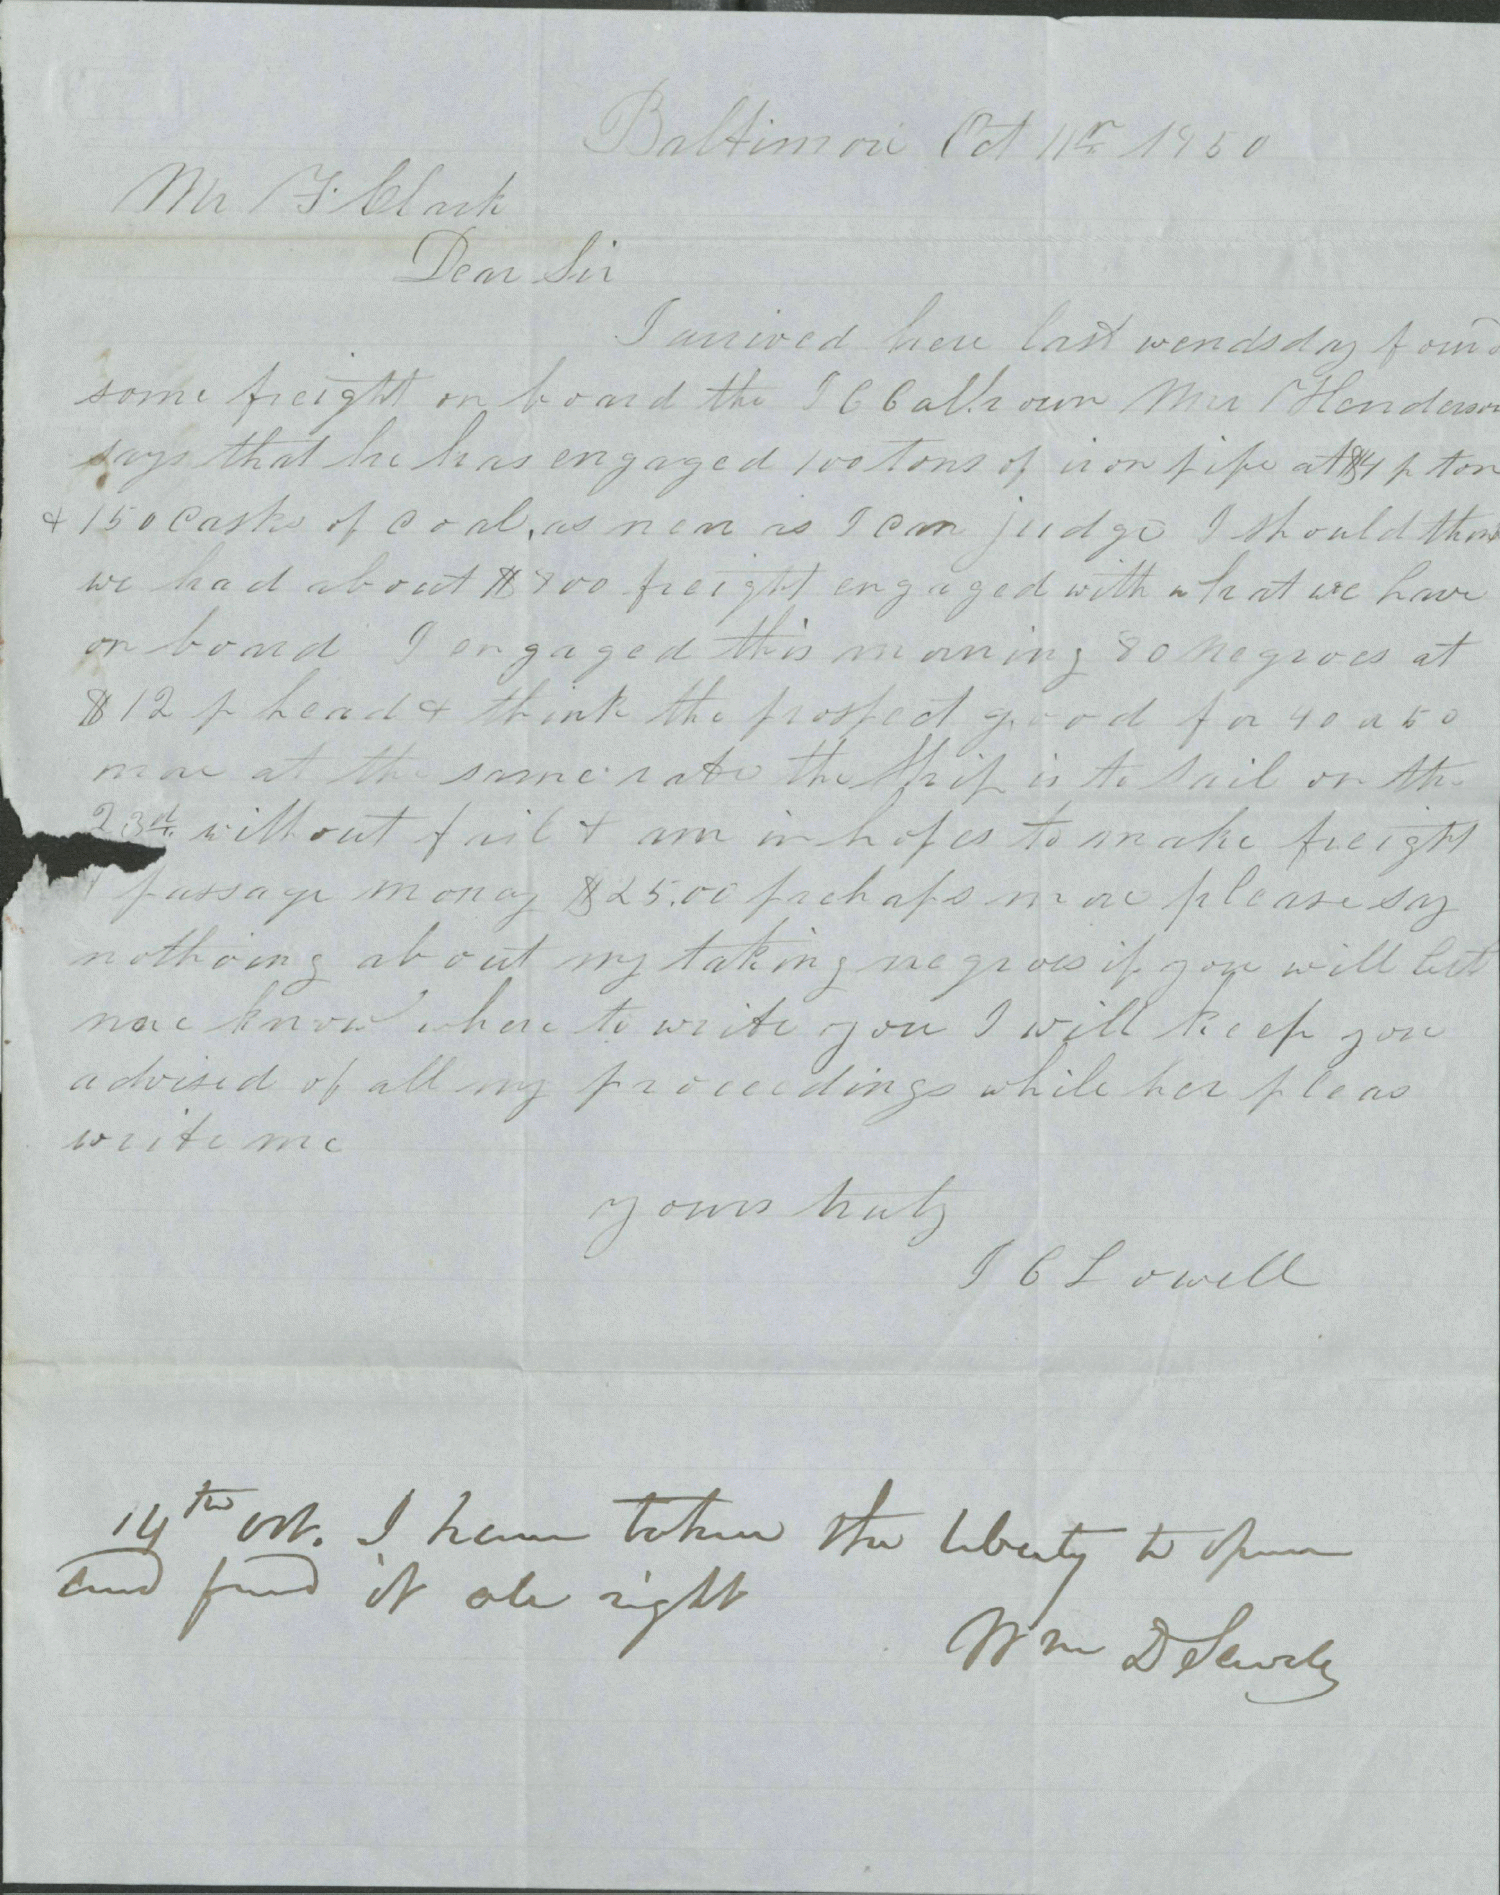 Baltimore Oct 11th 1850
Mr F Clark
Dear Sir
I arrived here last wendsday found
some freight on board the J C Calhoun Mr Henderson
says that he has engaged 100 tons of iron pipe at $4 p ton
& 150 Casks of Coal, as near as I can judge I should think
we had about $800 freight engaged with what we have
on board I engaged this morning 80 negroes at
$12 p head & think the prospect good for 40 or 50
more at the same rate the ship is to sail on the
23rd without fail & am in hopes to make freight
& passage money $25.00 prehaps more please say
nothoing about my taking negroes if you will lett
me know where to write you I will keep you
advised of all my proceedings while her pleas
write me
yours truly
J C Lowell
14th Oct. I have taken the liberty to open
and find it all right
Wm D